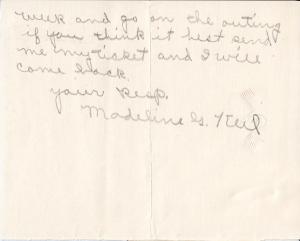 week and go on the outing
if you think it best send
me my ticket and I will
come back.
your Resp.
Madeline G.